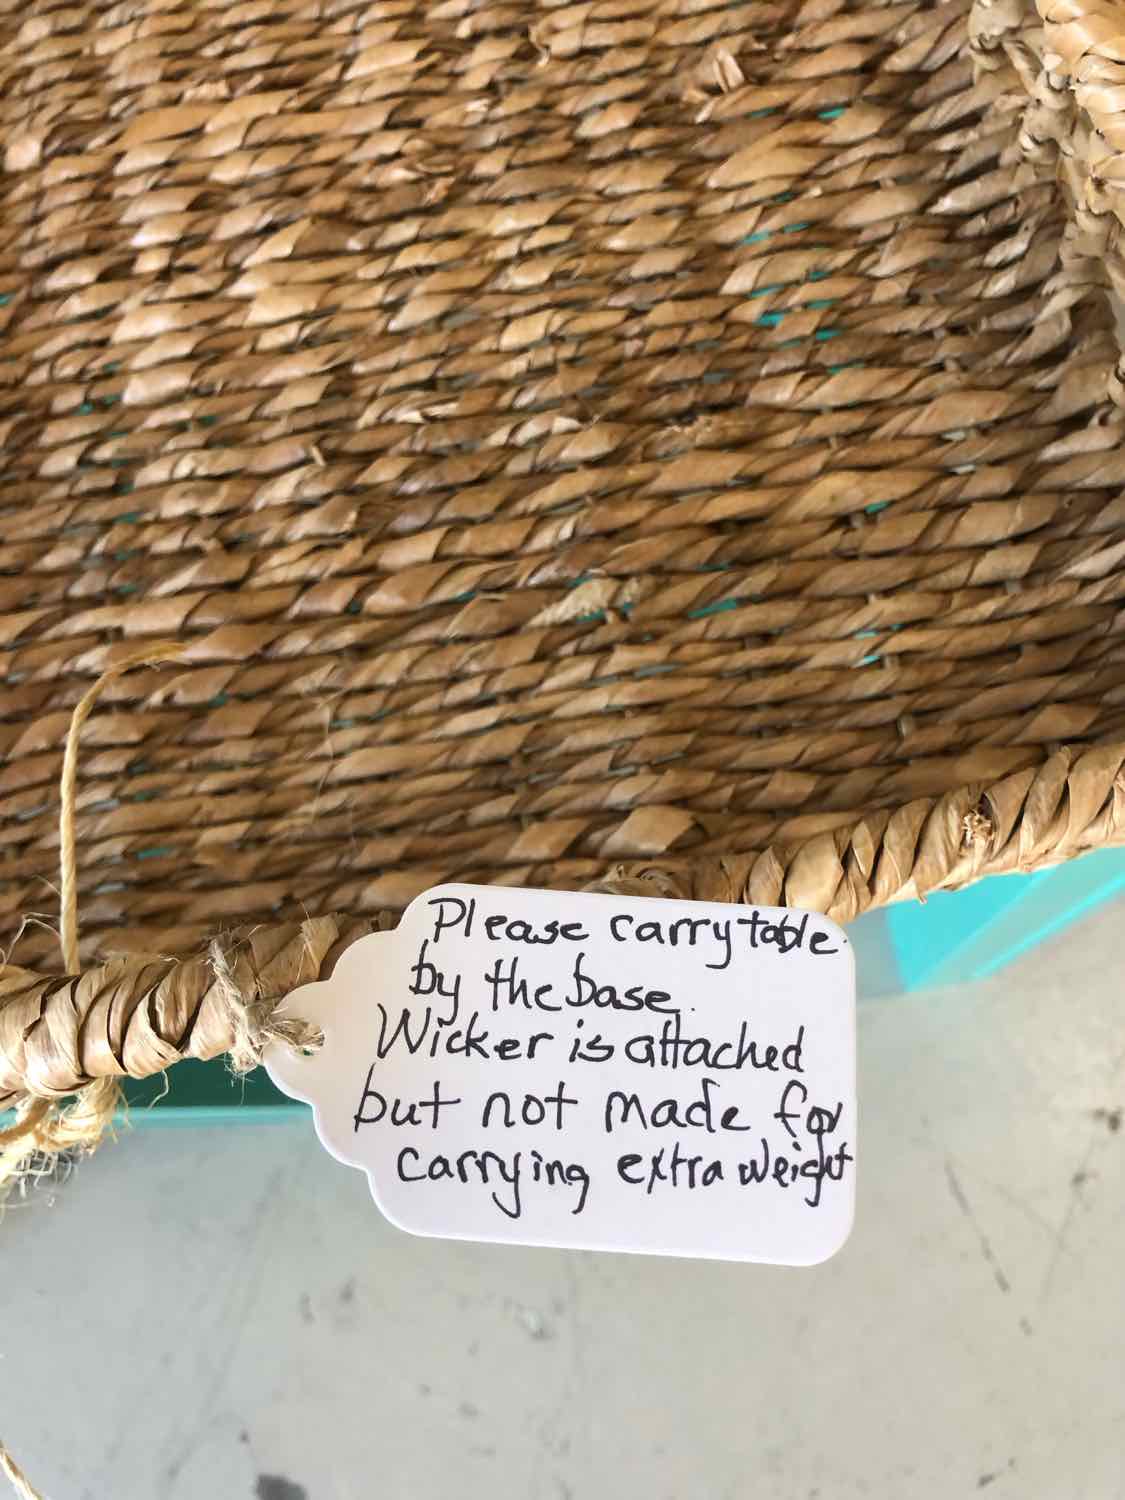 Please carry table
by the base.
Wicker is attached
but not made for
carrying extra weight